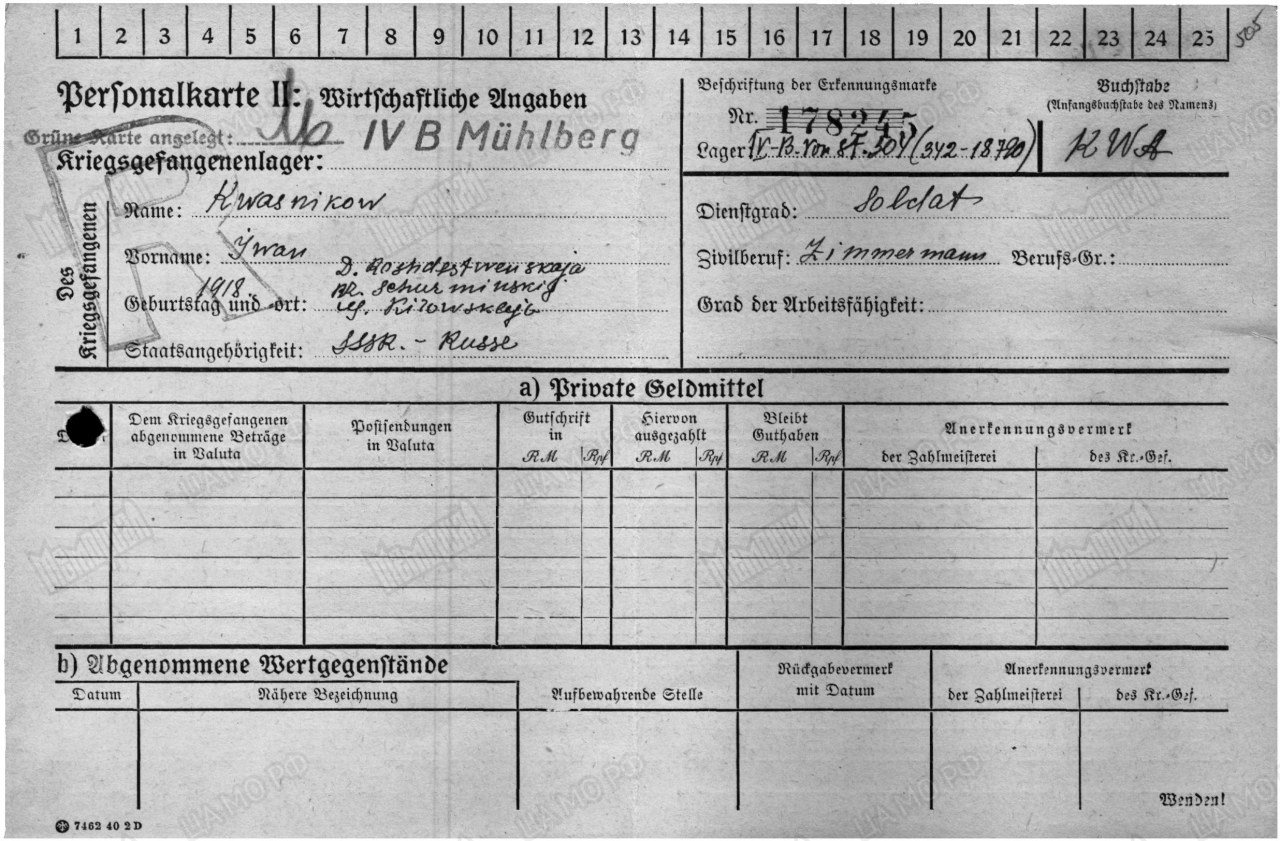 1 2 3 4 5 6 7 8 9 10 11 12 13 14 15 16 17 18 19 20 21 22 23 24 25
505
Personalkarte II: Wirtschaftliche Angaben
Grüne Karte angelegt:
IV B Mühlberg
Kriegsgefangenenlager:
Beschriftung der Erkennungsmarke
Nr. 178245
Lager: IV. B. von St. 304 (342-18790)
Buchstabe
(Anfangsbuchstabe des Namens)
KWA
Des Kriegsgefangenen
Name: Kwasnikow
Vorname: Iwan
Geburtstag und -ort: 1918 D. Roshdestwenskaja
Schurminskij
Kirowskaja
Staatsangehörigkeit: SSSR. - Russe
Dienstgrad: Soldat
Zivilberuf: Zimmermann Berufs-Gr.:
Grad der Arbeitsfähigkeit:
a) Private Geldmittel
Dem Kriegsgefangenen abgenommene Beträge in Valuta
Postsendungen in Valuta
Gutschrift in
RM Rpf
Hiervon ausgezahlt
RM Rpf
Bleibt Guthaben
RM Rpf
Anerkennungsvermerk
der Zahlmeisterei des Kr.-Gef.
b) Abgenommene Wertgegenstände
Datum Nähere Bezeichnung Aufbewahrende Stelle
Rückgabevermerk mit Datum
Anerkennungsvermerk
der Zahlmeisterei des Kr.-Gef.
Wenden!
7462 40 2 D
ЦАМО РФ